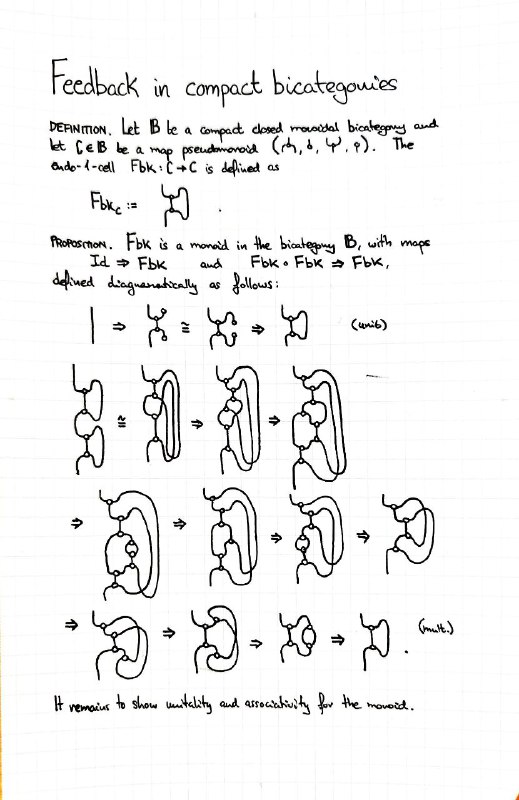 Feedback in compact bicategories
DEFINITION. Let B be a compact closed monoidal bicategory and
let C ∈ B be a map pseudomonoid ( , , , ). The
endo-1-cell Fbk : C → C is defined as
Fbk_C :=
PROPOSITION. Fbk is a monoid in the bicategory B, with maps
Id ⇒ Fbk and Fbk ∘ Fbk ⇒ Fbk,
defined diagrammatically as follows:
⇒ ≅ ⇒ (unit)
≅ ⇒ ⇒
⇒ ⇒ ⇒ ⇒
⇒ ⇒ ⇒ ⇒ (mult.)
It remains to show unitality and associativity for the monoid.